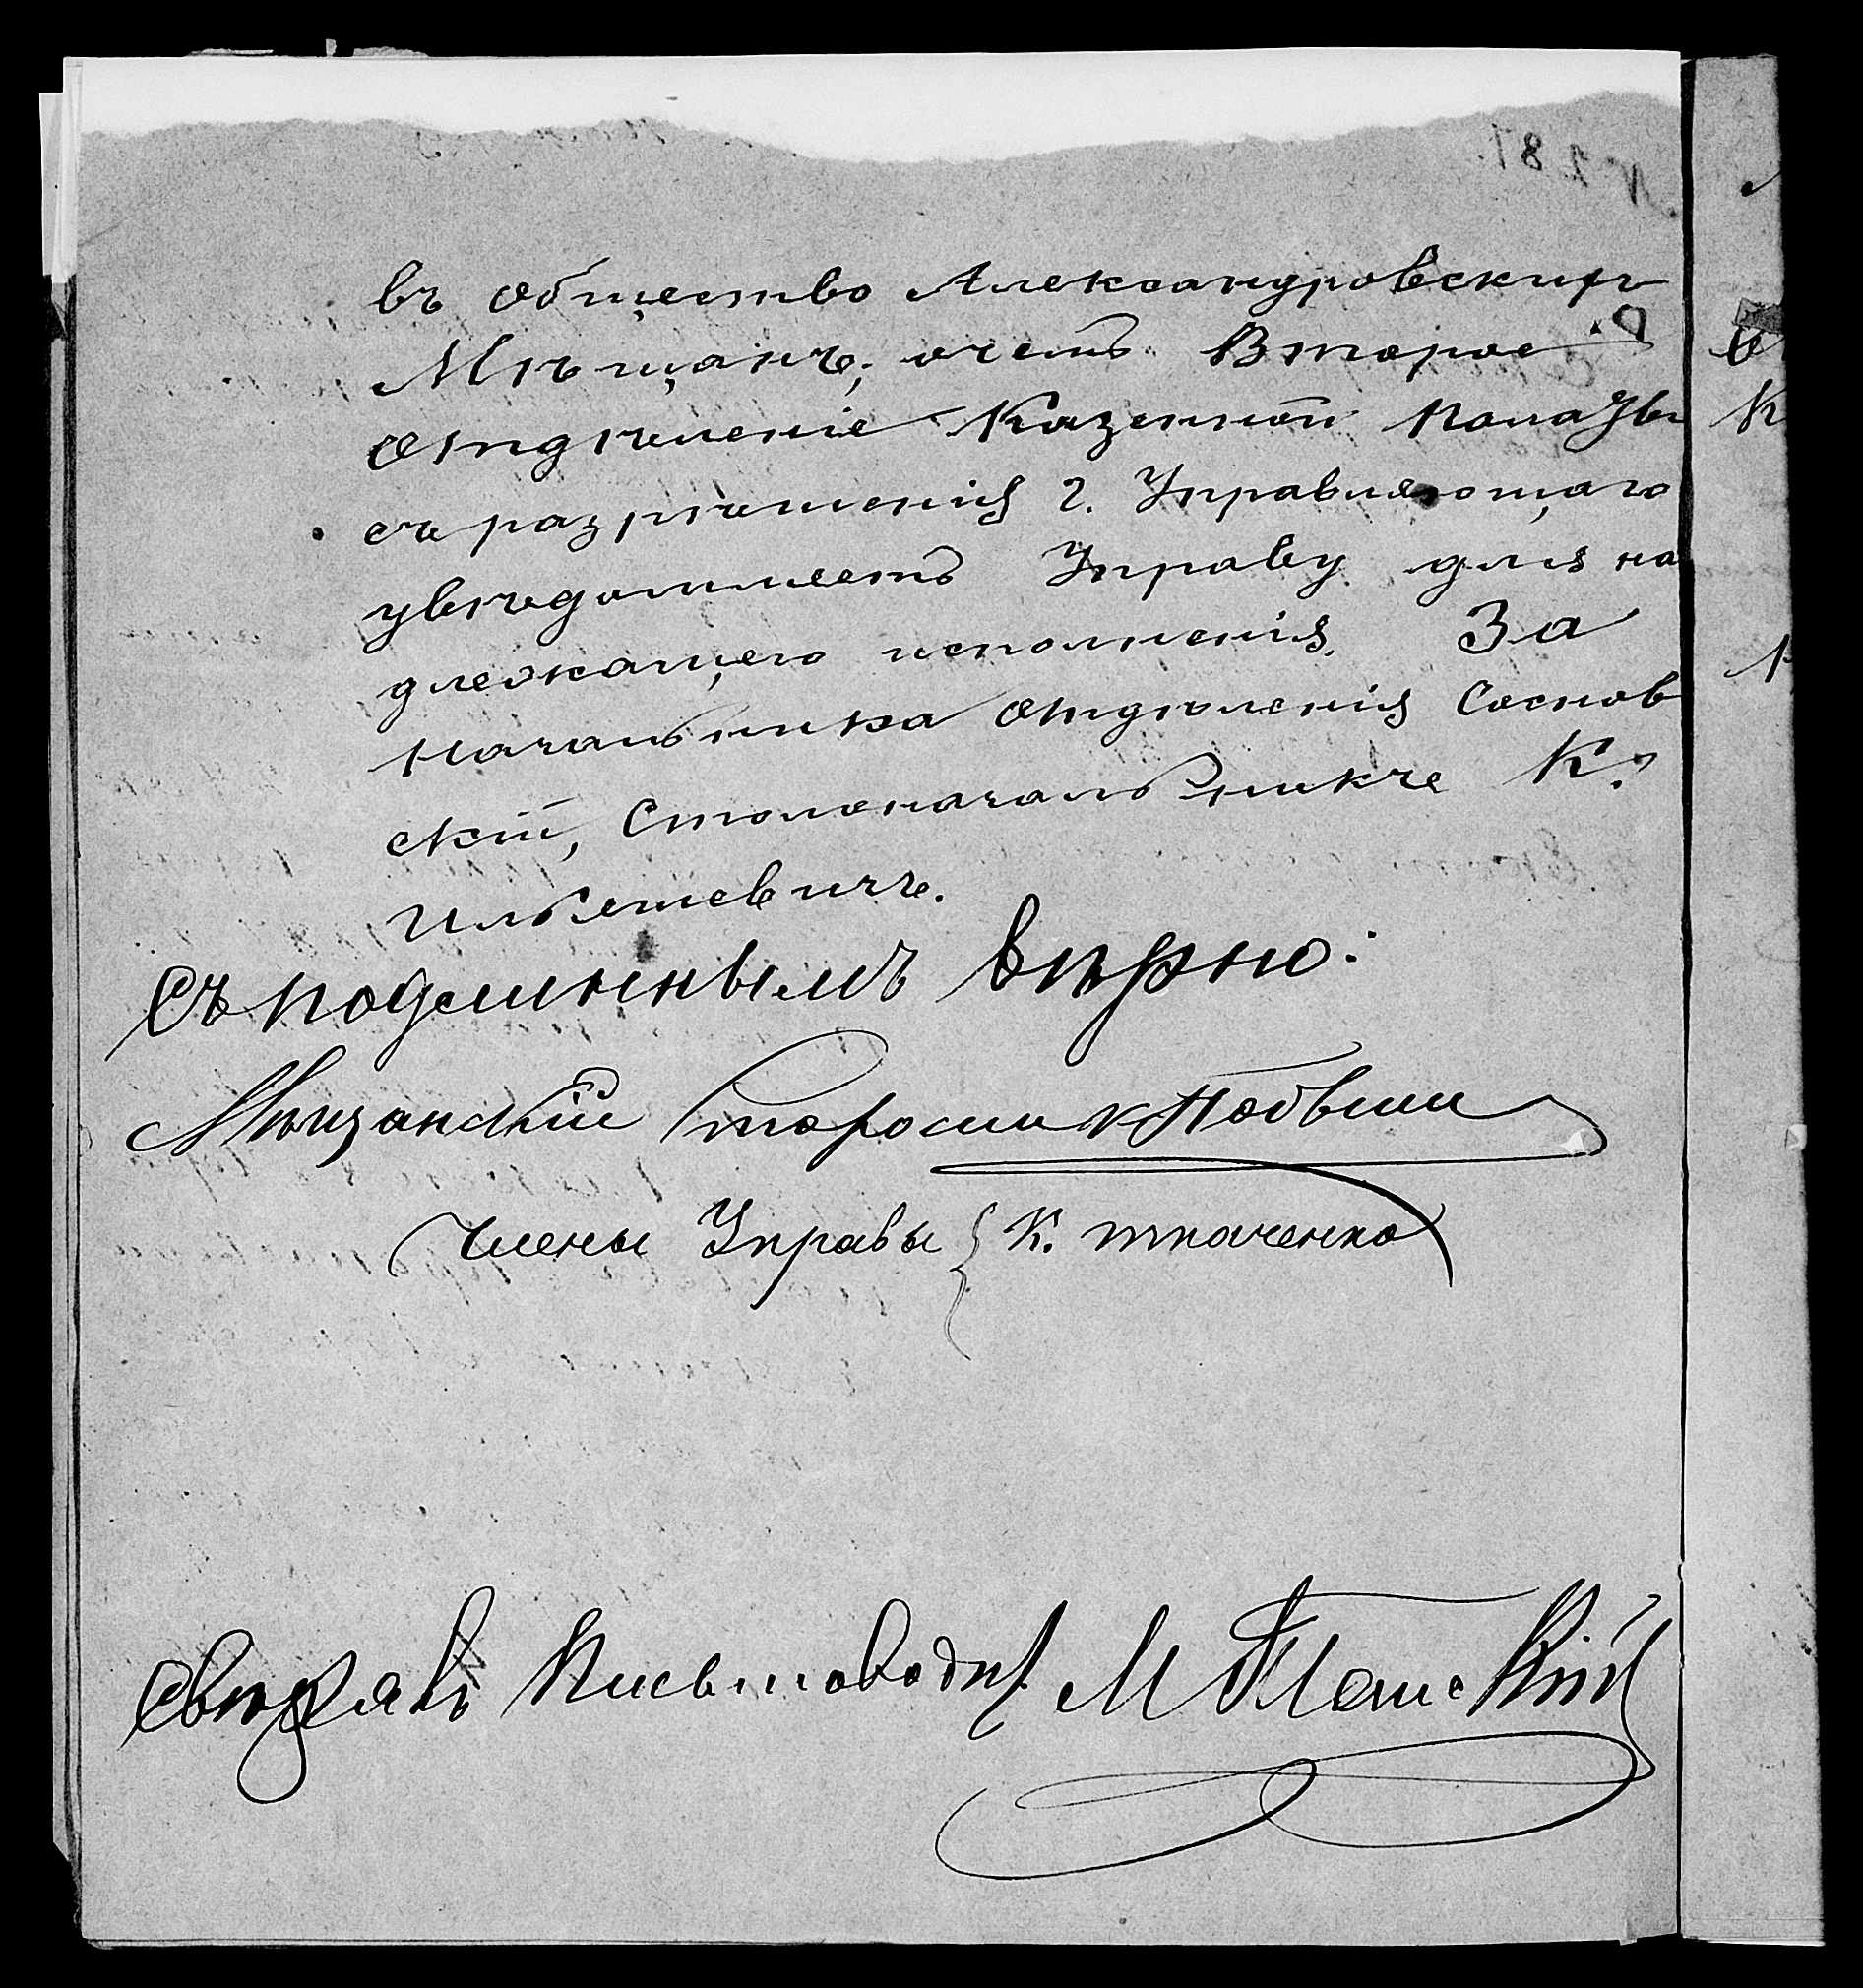 въ общество Александровскихъ
Мѣщанъ; о чемъ Второе
Отдѣленіе Казенной Палаты
съ разрѣшенія г. Управляющаго
увѣдомляетъ Управу для на
длежащего исполненія. За
Начальника Отдѣленія Соснов
скій, Столоначальникъ К.
съ подлиннымъ вѣрно:
Мѣщанскій Староста
Члены Управы { К. Ткаченко
Свѣрялъ Письмоводит М